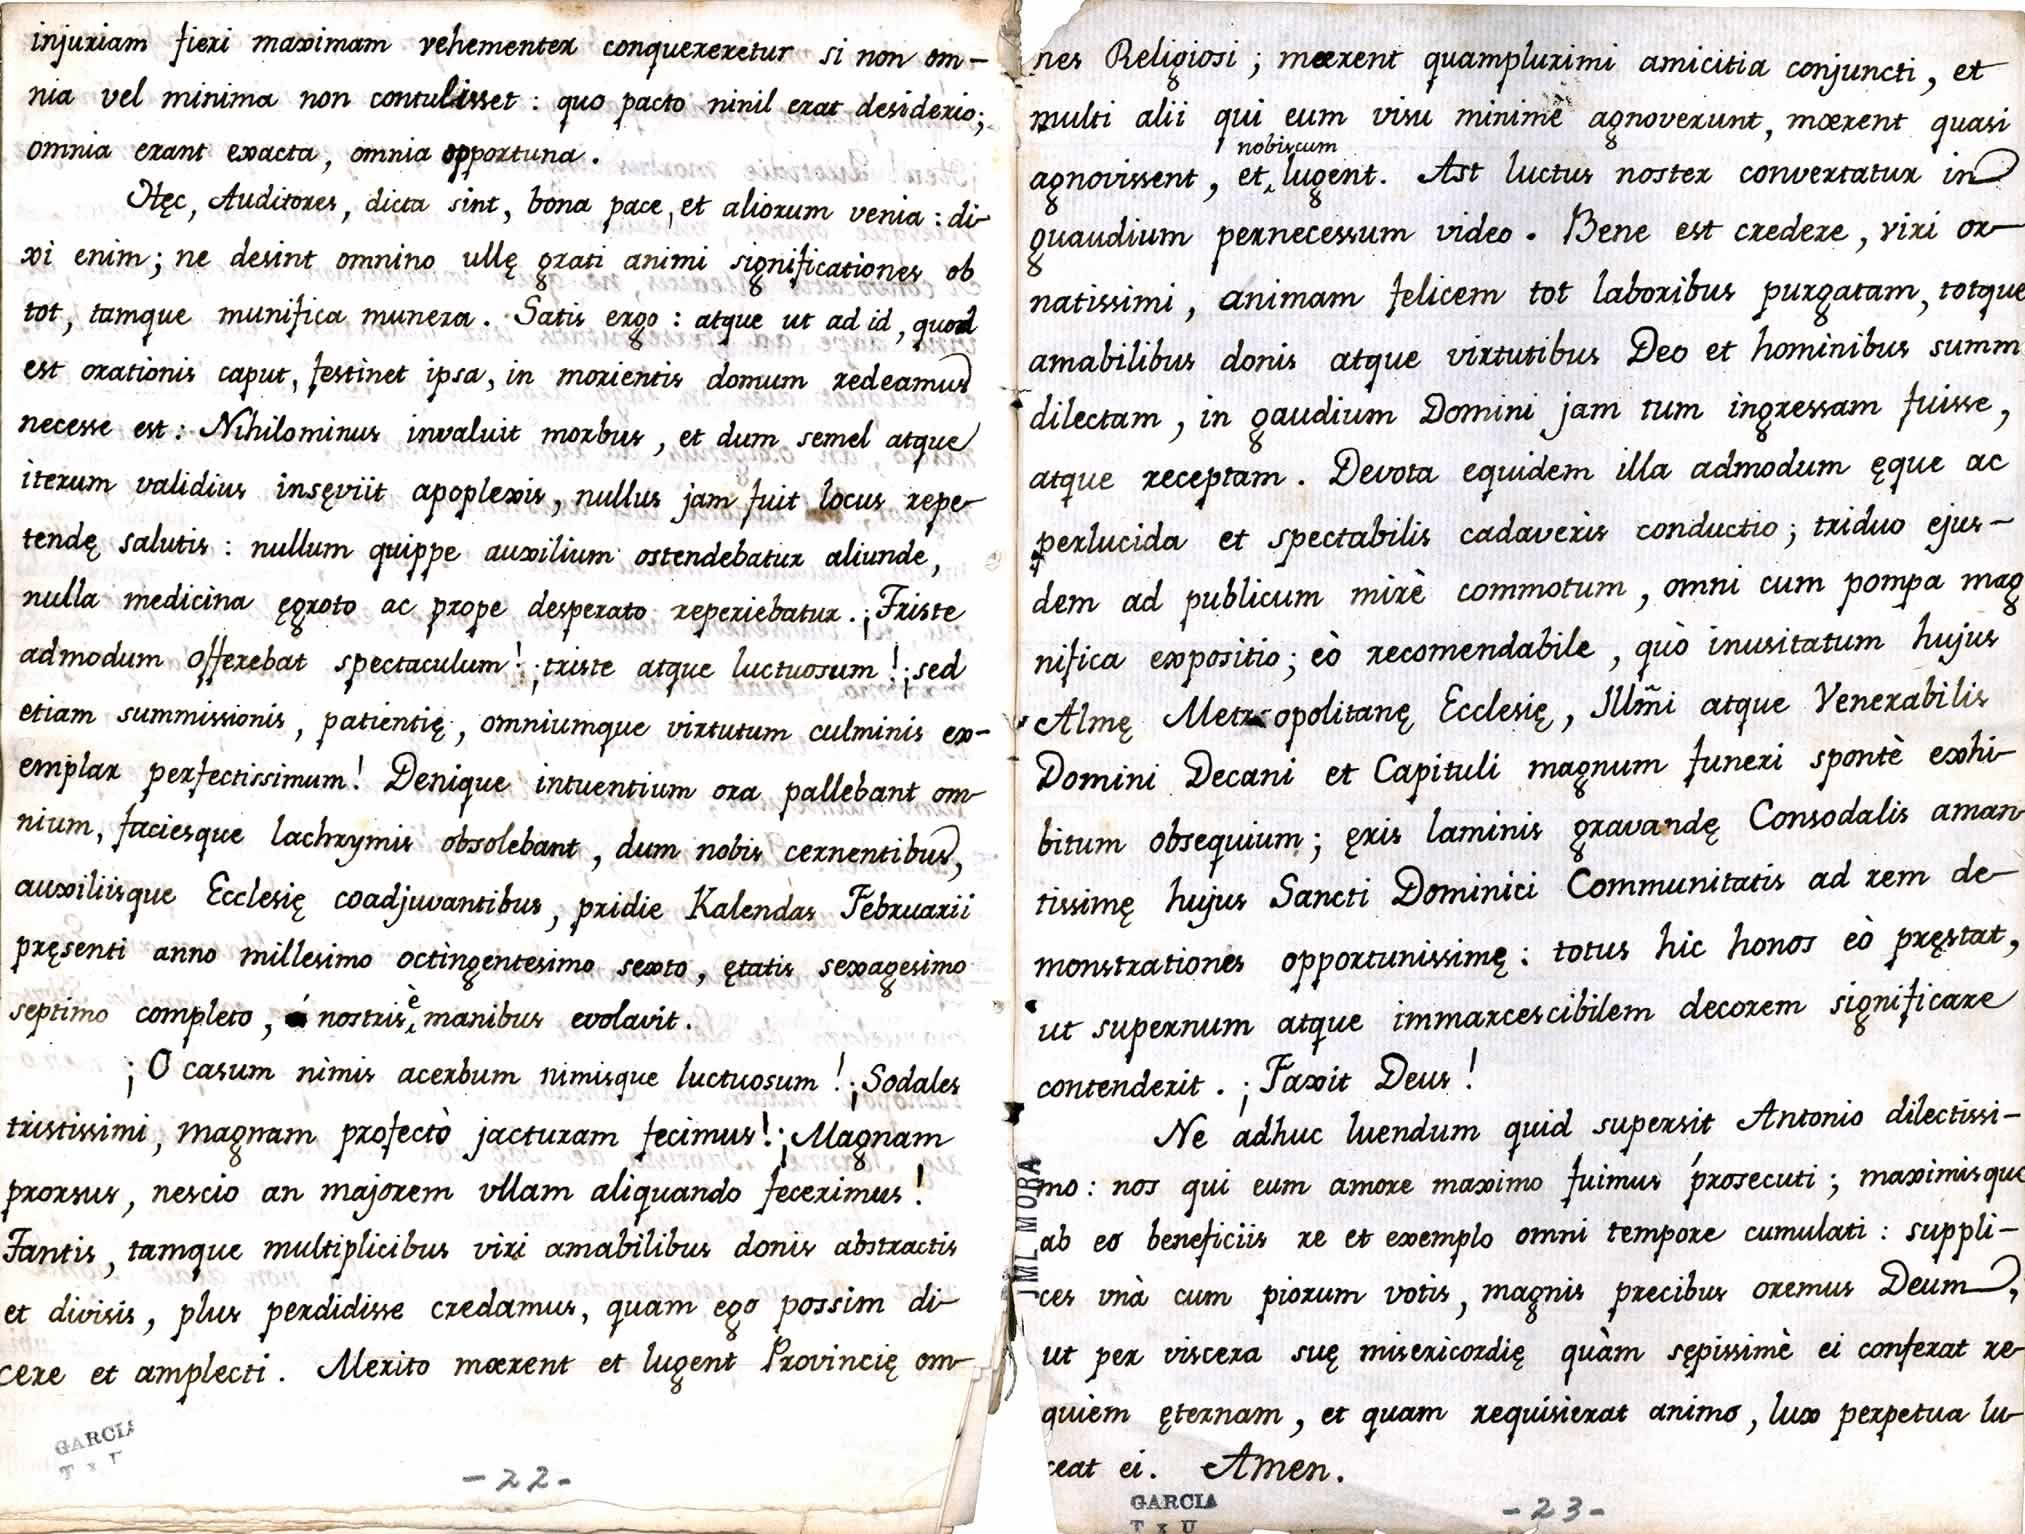 injuriam fieri maximam vehementer conquereretur si non om-
nia vel minima non contulisset: quo pacto ninil erat desiderio;
omnia erant exacta, omnia opportuna.
Hęc, Auditores, dicta sint, bona pace, et aliorum venia: di-
xi enim; ne desint omnino ullę grati animi significationes ob
tot, tamque munifica munera. Satis ergo: atque ut ad id, quod
est orationis caput, festinet ipsa, in morientis domum redeamus
necesse est: Nihilominus invaluit morbus, et dum semel atque
iterum validius insęviit apoplexis, nullus jam fuit locus repe-
tendę salutis: nullum quippe auxilium ostendebatur aliunde,
nulla medicina ęgroto ac prope desperato reperiebatur. ¡Triste
admodum offerebat spectaculum! ¡triste atque luctuosum! ¡sed
etiam summissionis, patientię, omniumque virtutum culminis ex-
emplar perfectissimum! Denique intuentium ora pallebant om-
nium, faciesque lachrymis obsolebant, dum nobis cernentibus,
auxiliisque Ecclesię coadjuvantibus, pridie Kalendas Februarii
pręsenti anno millesimo octingentesimo sexto, ętatis sexagesimo
septimo completo, á nostris è manibus evolavit.
¡O casum nimis acerbum nimisque luctuosum! ¡Sodales
tristissimi, magnam profectò jacturam fecimus! ¡Magnam
prorsus, nescio an majorem vllam aliquando fecerimus!
Tantis, tamque multiplicibus viri amabilibus donis abstractis
et divisis, plus perdidisse credamus, quam ego possim di-
cere et amplecti. Merito mœrent et lugent Provincię om-
GARCIA
T x U
-22-
nes Religiosi; mœrent quamplurimi amicitia conjuncti, et
multi alii qui eum visu minimè agnoverunt, mœrent quasi
agnovissent, et nobiscum lugent. Ast luctus noster convertatur in
guaudium pernecessum video. Bene est credere, viri or-
natissimi, animam felicem tot laboribus purgatam, totque
amabilibus donis atque virtutibus Deo et hominibus summ
dilectam, in gaudium Domini jam tum ingressam fuisse,
atque receptam. Devota equidem illa admodum ęque ac
perlucida et spectabilis cadaveris conductio; triduo ejus-
dem ad publicum mirè commotum, omni cum pompa mag
nifica expositio; eò recomendabile, quò inusitatum hujus
Almę Metropolitanę Ecclesię, Illm̃i atque Venerabilis
Domini Decani et Capituli magnum funeri spontè exhi-
bitum obsequium; ęris laminis gravandę Consodalis aman
tissimę hujus Sancti Dominici Communitatis ad rem de-
monstrationes opportunissimę: totus hic honos eò pręstat,
ut supernum atque immarcescibilem decorem significare
contenderit. ¡Faxit Deus!
Ne adhuc luendum quid supersit Antonio dilectissi-
mo: nos qui eum amore maximo fuimus prosecuti; maximisque
ab eo beneficiis re et exemplo omni tempore cumulati: suppli-
ces vnà cum piorum votis, magnis precibus oremus Deum,
ut per viscera suę misericordię quàm sępissimè ei conferat re-
quiem ęternam, et quam requisierat animo, lux perpetua lu-
ceat ei. Amen.
JML MORA
GARCIA
T x U
-23-